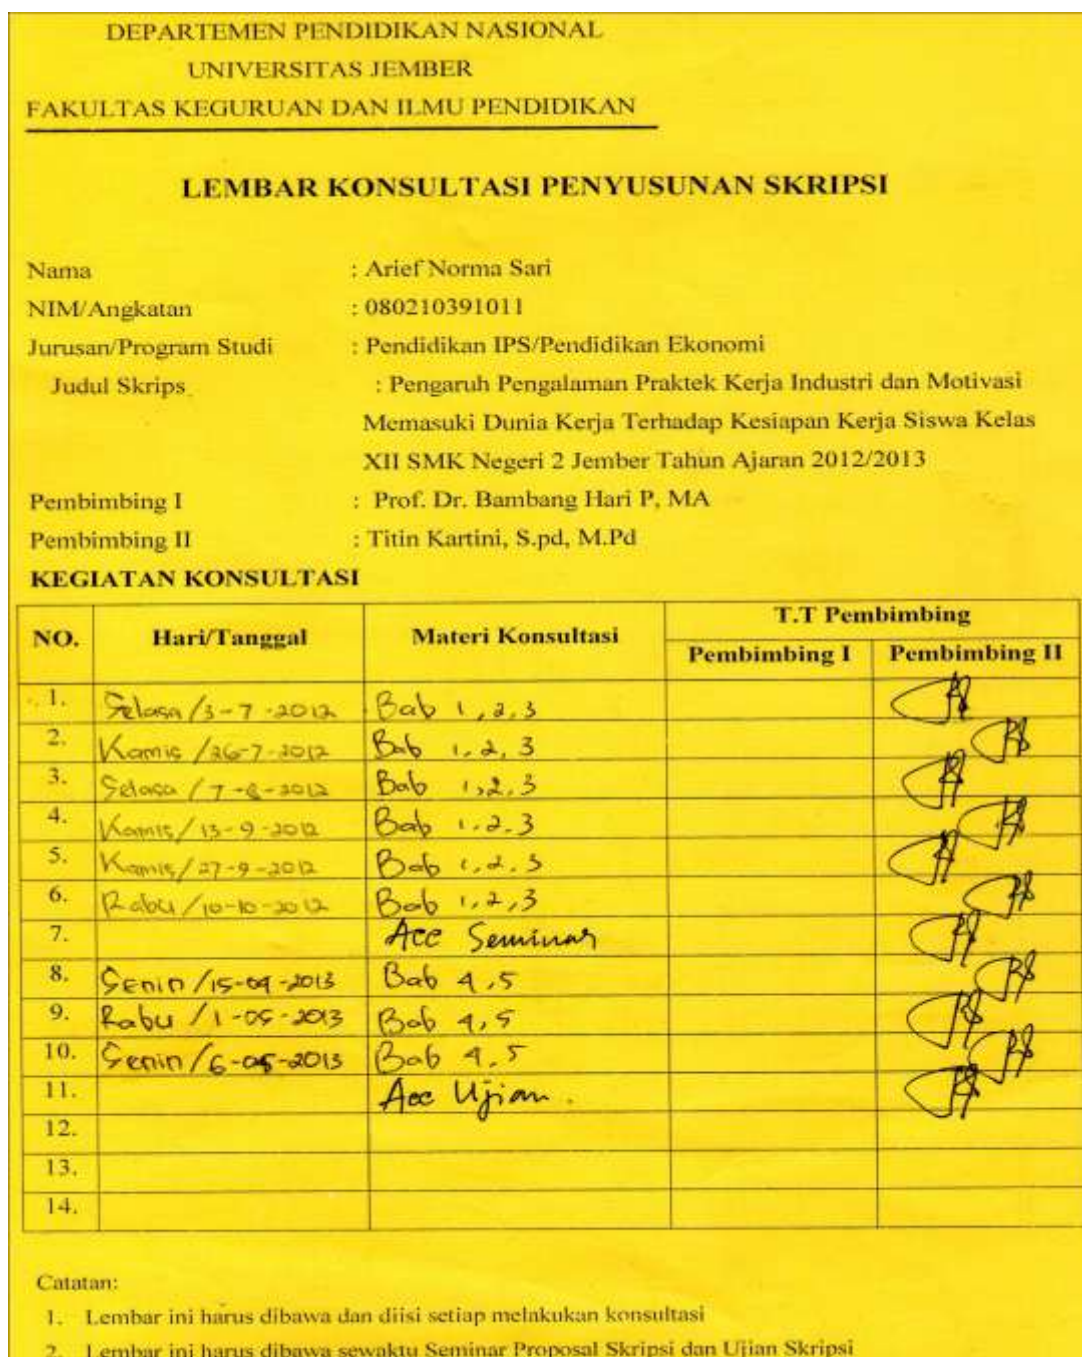 DEPARTEMEN PENDIDIKAN NASIONAL
UNIVERSITAS JEMBER
FAKULTAS KEGURUAN DAN ILMU PENDIDIKAN
LEMBAR KONSULTASI PENYUSUNAN SKRIPSI
Nama : Arief Norma Sari
NIM/Angkatan : 080210391011
Jurusan/Program Studi : Pendidikan IPS/Pendidikan Ekonomi
Judul Skrips : Pengaruh Pengalaman Praktek Kerja Industri dan Motivasi
Memasuki Dunia Kerja Terhadap Kesiapan Kerja Siswa Kelas
XII SMK Negeri 2 Jember Tahun Ajaran 2012/2013
Pembimbing I : Prof. Dr. Bambang Hari P, MA
Pembimbing II : Titin Kartini, S.pd, M.Pd
KEGIATAN KONSULTASI
NO. Hari/Tanggal Materi Konsultasi T.T Pembimbing
Pembimbing I Pembimbing II
1. Selasa/3-7-2012 Bab 1,2,3
2. Kamis/26-7-2012 Bab 1,2,3
3. Selasa/7-8-2012 Bab 1,2,3
4. Kamis/13-9-2012 Bab 1.2.3
5. Kamis/27-9-2012 Bab 1,2,3
6. Rabu/10-10-2012 Bab 1,2,3
7. Acc Seminar
8. Senin/15-04-2013 Bab 4,5
9. Rabu/1-05-2013 Bab 4,5
10. Senin/6-05-2013 Bab 4,5
11. Acc Ujian.
12.
13.
14.
Catatan:
1. Lembar ini harus dibawa dan diisi setiap melakukan konsultasi
2. Lembar ini harus dibawa sewaktu Seminar Proposal Skripsi dan Ujian Skripsi